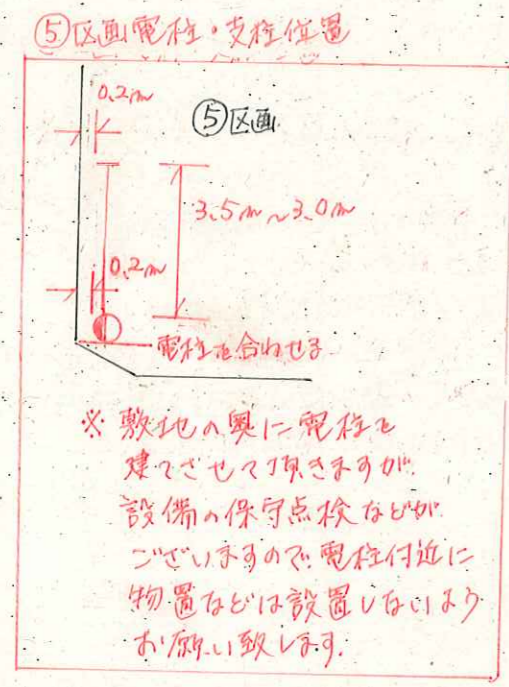 ⑤区画電柱・支柱位置
0.2m
⑤区画
3.5m～3.0m
0.2m
電柱を合わせる
※ 敷地の奥に電柱を
建てさせて頂きますが、
設備の保守点検などが
ございますので、電柱付近に
物置などは設置しないよう
お願い致します。